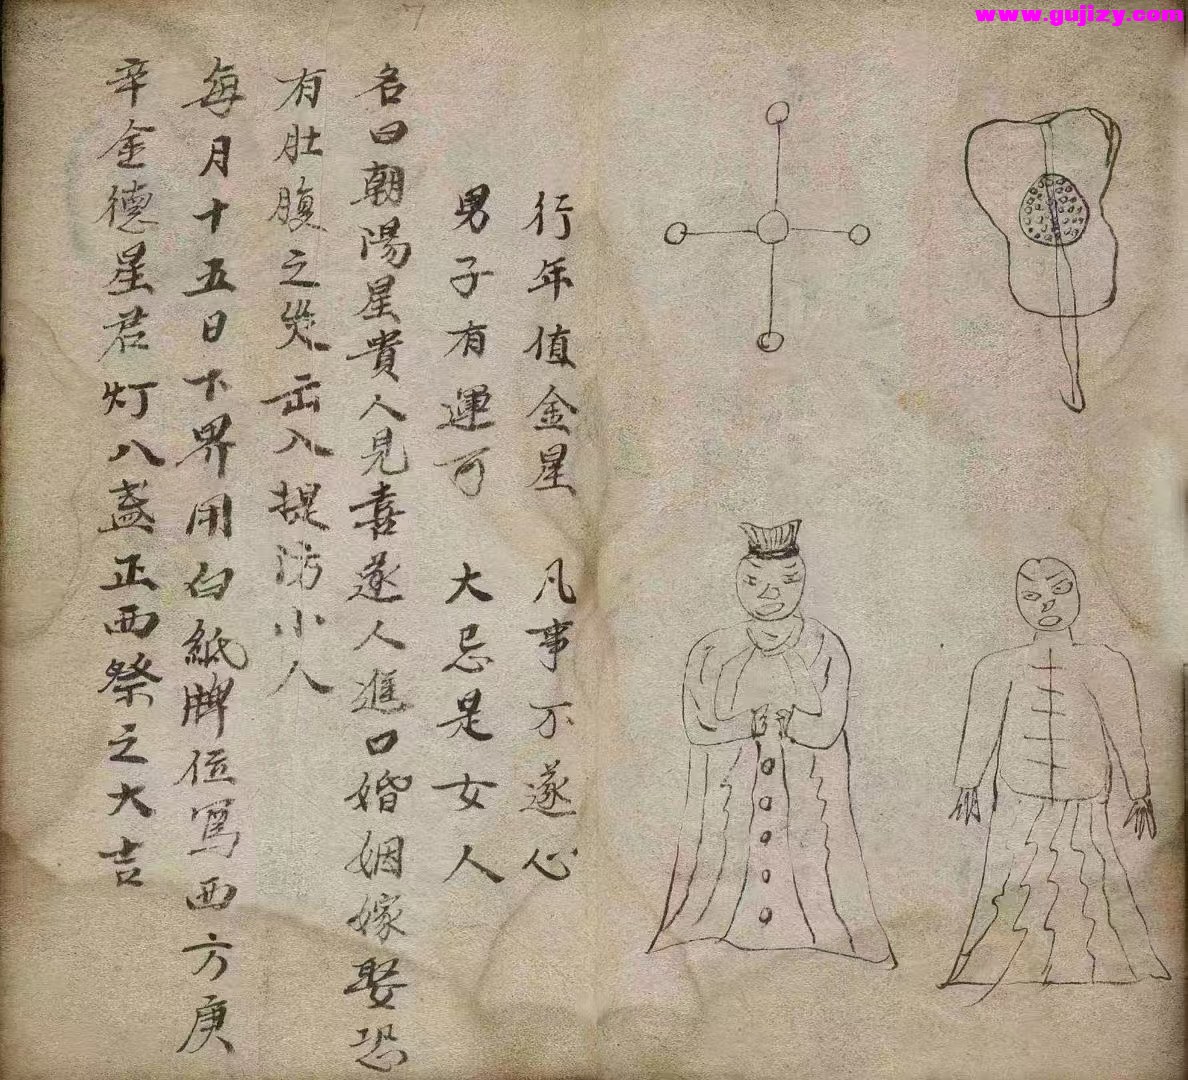 www.gujizy.com
行年值金星　凡事不遂心
男子有運可　大忌是女人
名曰朝陽星貴人見喜遂人進口婚姻嫁娶恐
有肚腹之災出入提防小人
每月十五日下界用白紙牌位寫西方庚
辛金德星君灯八盞正西祭之大吉